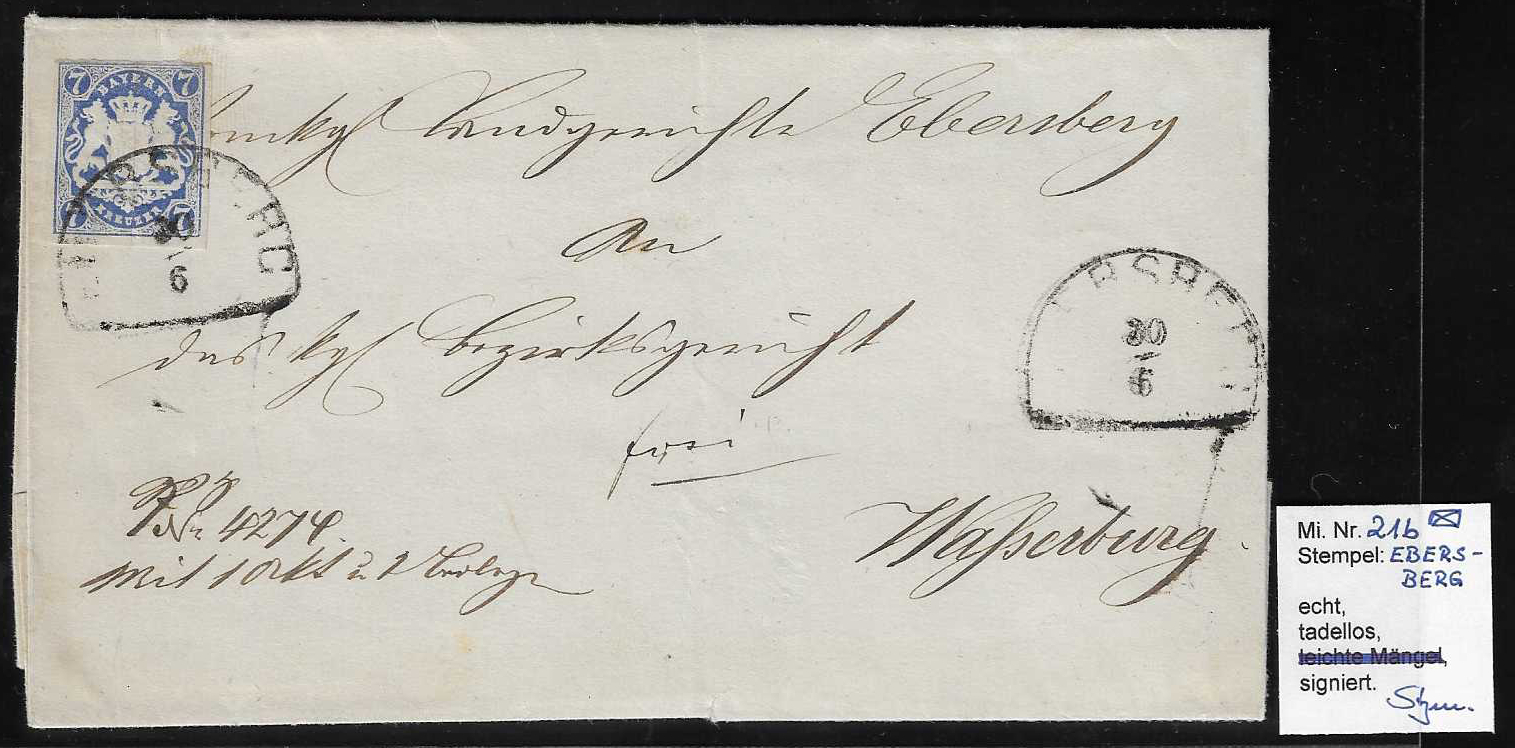 7 7
BAYERN
KREUZER
7 7
EBERSBERG
30
6
Vom kgl Landgerichte Ebersberg
An
das kgl Bezirksgericht
EBERSBERG
30
6
frei
Nr. 4274.
mit 1 Akt u.
Wasserburg
Mi. Nr. 21b
Stempel: EBERS-
BERG
echt,
tadellos,
leichte Mängel,
signiert.